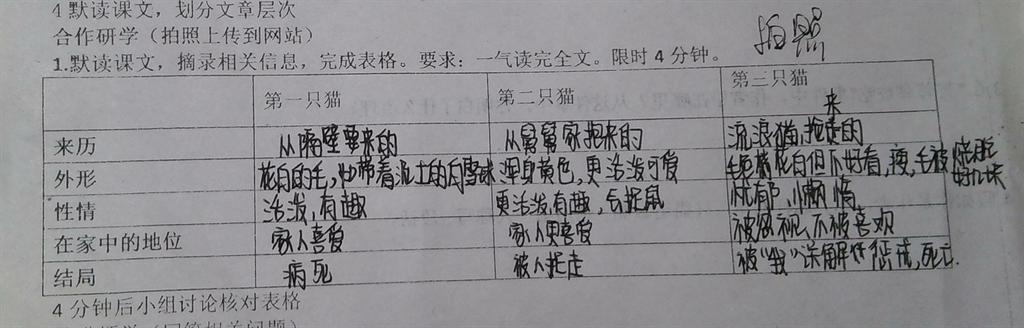 4 默读课文，划分文章层次
合作研学（拍照上传到网站）
拍照
1.默读课文，摘录相关信息，完成表格。要求：一气读完全文。限时 4 分钟。
第一只猫 第二只猫 第三只猫
来历 从隔壁要来的 从舅舅家抱来的 流浪猫,抱来的
外形 花白的毛,如带着泥土的白雪球 浑身黄色,更活泼可爱 毛色花白但不好看,瘦,毛被烧脱好几块
性情 活泼,有趣 更活泼,有趣,会捉鼠 忧郁,懒惰
在家中的地位 家人喜爱 家人更喜爱 被忽视,不被喜欢
结局 病死 被人捉走 被“我”误解
4 分钟后小组讨论核对表格